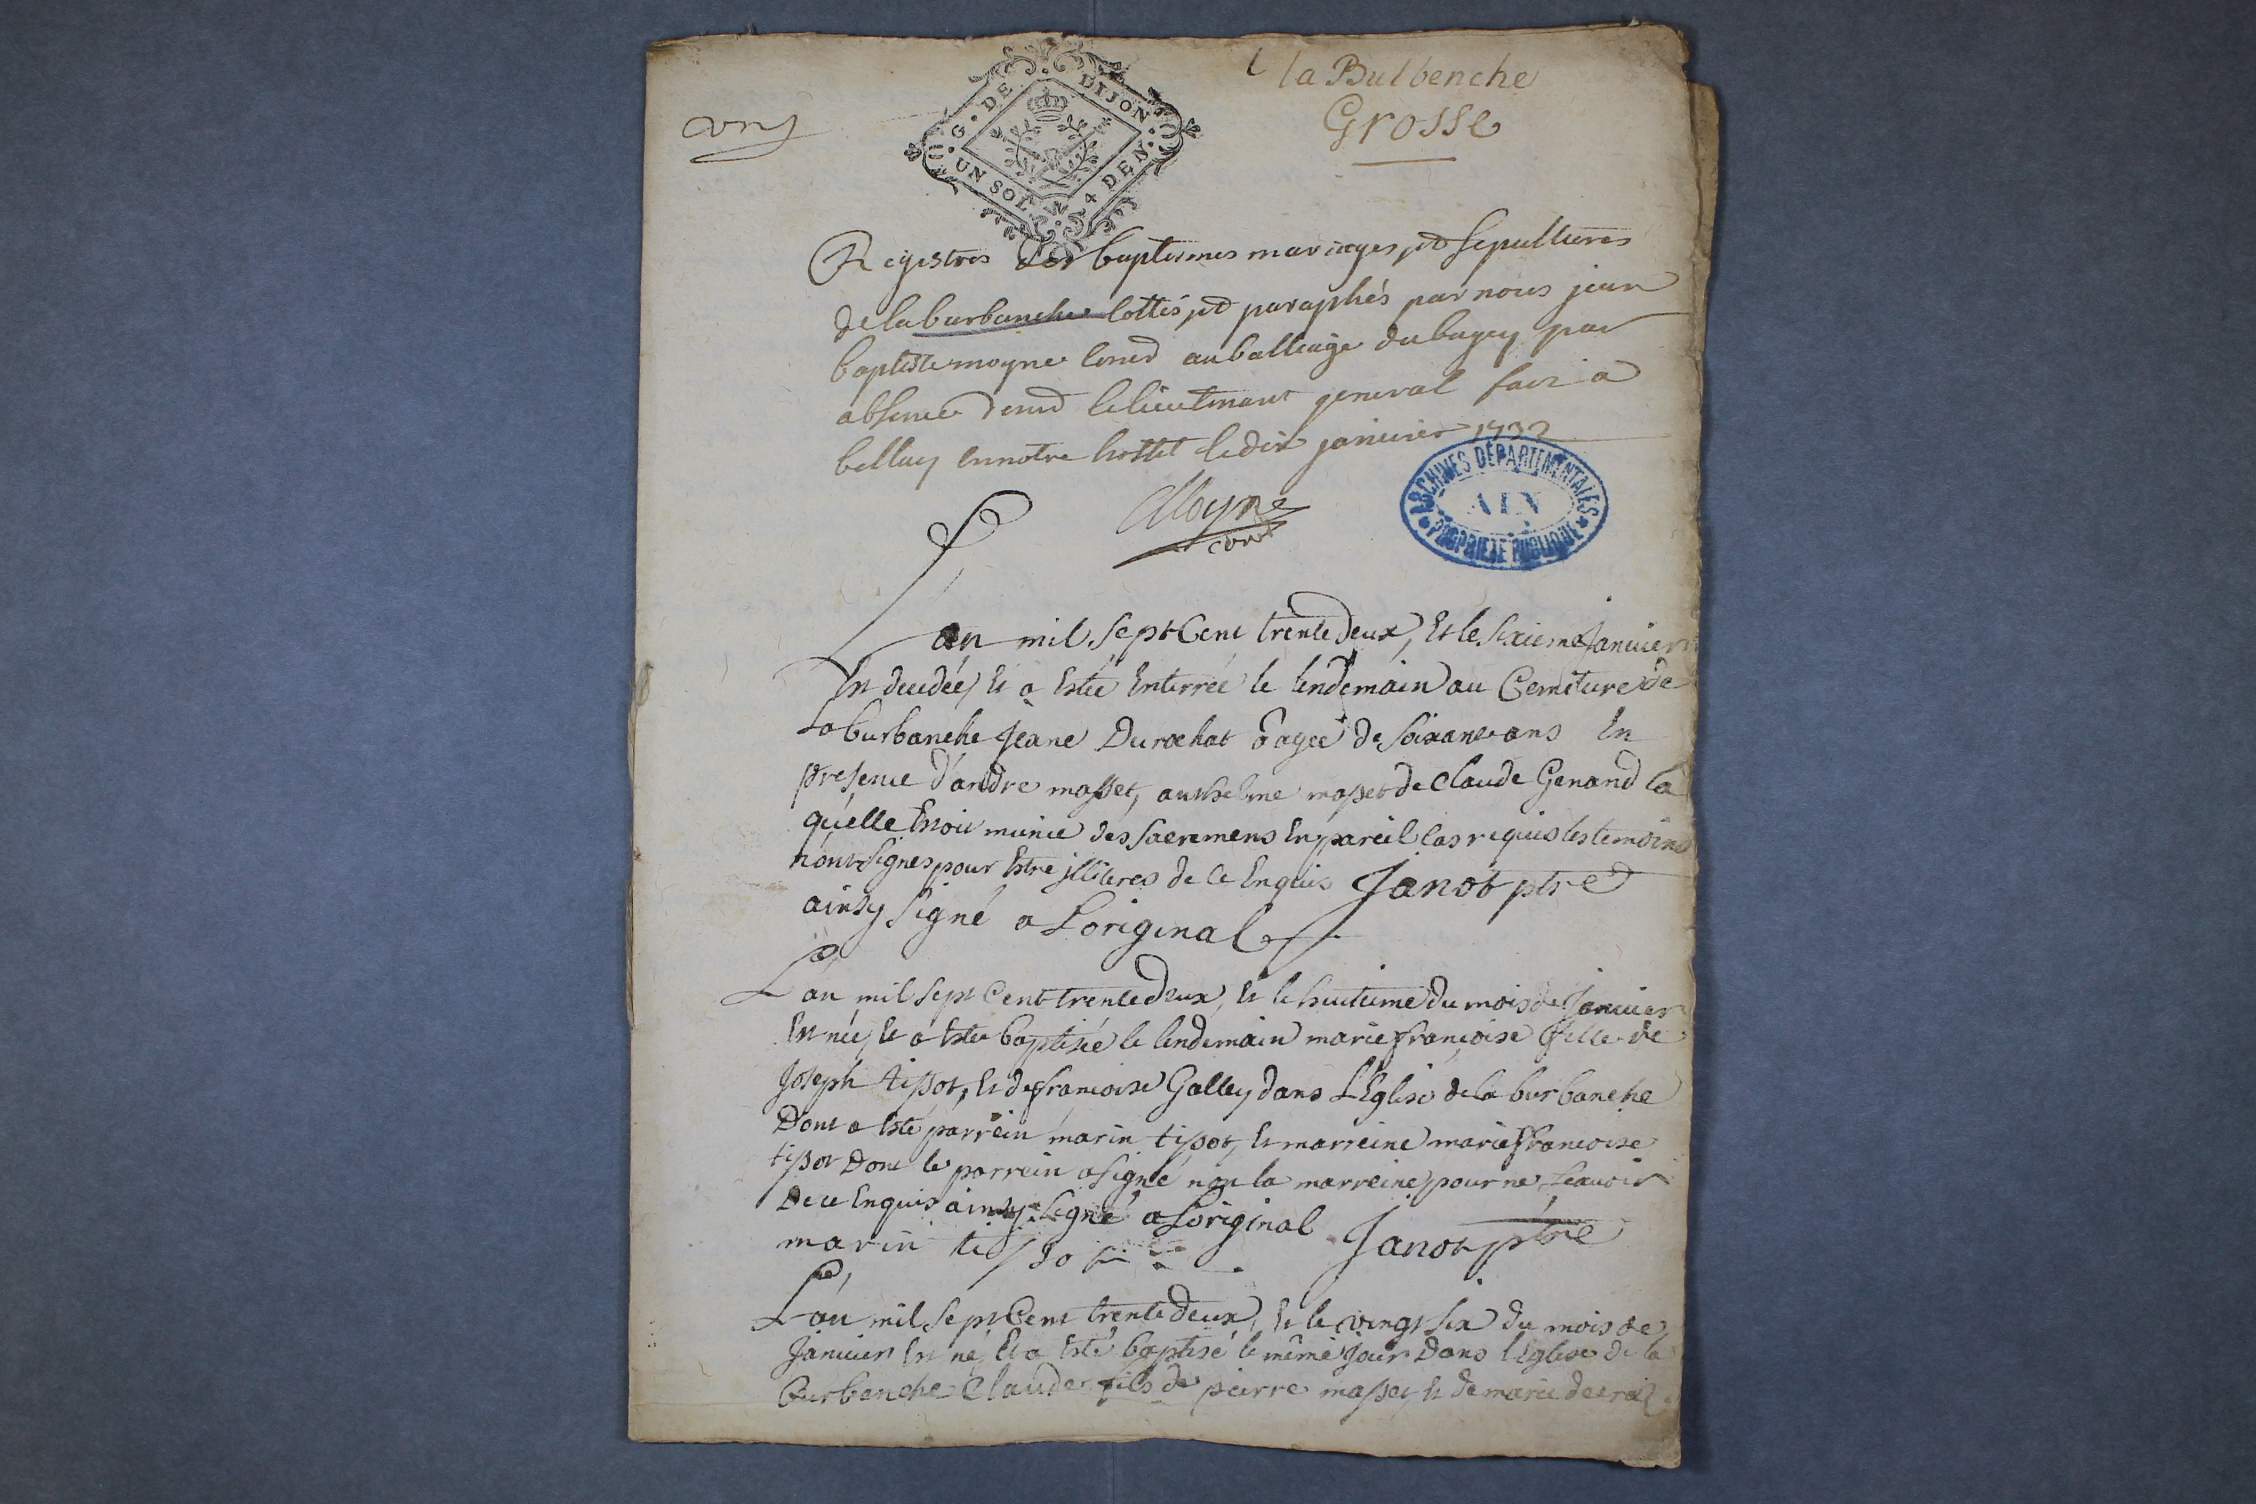 la Bulbenche
Grosse
G. DE DIJON
UN SOL 4 DEN
Registres des baptesmes mariages et sepultures
de la burbanche cottés et paraphés par nous jean
baptiste moyne au balliage du bugey par
absence de le lieutenant general fait a
belley en notre hostel le dix janvier 1732
Moyne
ARCHIVES DÉPARTEMENTALES
AIN
PROPRIÉTÉ PUBLIQUE
Lan mil sept Cent trente deux, Et le sixieme Janvier
Est decedée, Et a Estée Enterrée le lendemain au Cemetiere de
La burbanche Jeane Durochat agée de soixante ans En
presence d'andre masset, anthelme masset de Claude Genand la
quelle Estoit munie des sacremens En pareil cas requis les temoins
nont signes pour Estre illiteres de ce Enquis Janot ptre
ainsy signé a Loriginal
L'an mil sept Cent trente deux, Et le huitieme du mois de Janvier
Est née, Et a Estée baptisée le lendemain marie françoise fille de
Joseph tissot, Et de francoise Galley dans L'Eglise de la burbanche
Dont a Esté parrein marin tissot, Et marreine marie francoise
tissot Dont le parrein a signé non la marreine pour ne sçavoir
De ce Enquis ainsy signé a Loriginal Janot ptre
marin tissot
L'an mil sept Cent trente deux, Et le vingt six du mois de
Janvier Est né, Et a Esté baptisé le même jour Dans l'Eglise de la
Burbanche Claude fils de pierre masset Et de marie